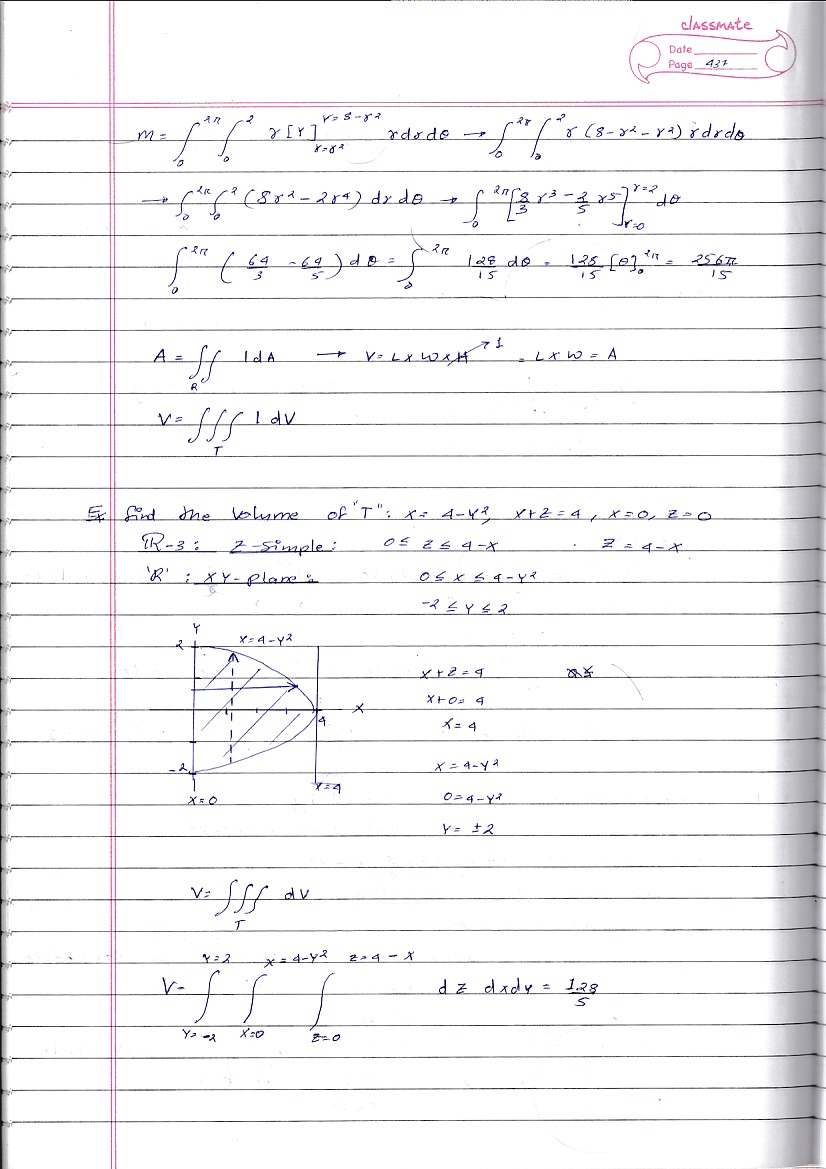 classmate
Date
Page 437
M = ∫₀^2π ∫₀^2 r [Y]_{r=r²}^{Y=8-r²} r dr dθ → ∫₀^2π ∫₀^2 r (8-r²-r²) r dr dθ
→ ∫₀^2π ∫₀^2 (8r²-2r⁴) dr dθ → ∫₀^2π [8/3 r³ - 2/5 r⁵]_{r=0}^{r=2} dθ
∫₀^2π (64/3 - 64/5) dθ = ∫₀^2π 128/15 dθ = 128/15 [θ]₀^2π = 256π/15
A = ∬_R 1 dA → V = L x W x H ↗ 1 = L x W = A
V = ∭_T 1 dV
Ex find the volume of "T": x = 4-Y², x+z=4, x=0, z=0
R-3: z-simple: 0 ≤ z ≤ 4-x . z = 4-x
'R': XY-plane: 0 ≤ x ≤ 4-Y²
-2 ≤ Y ≤ 2
Y
2 x=4-Y²
x+z=4
x+0=4
X
4
x=4
-2
x=4-Y²
x=4
x=0
0=4-Y²
Y = ±2
V = ∭_T dV
Y=2 x=4-Y² z=4-x
V = ∫ ∫ ∫ dz dx dy = 128/5
Y=-2 x=0 z=0